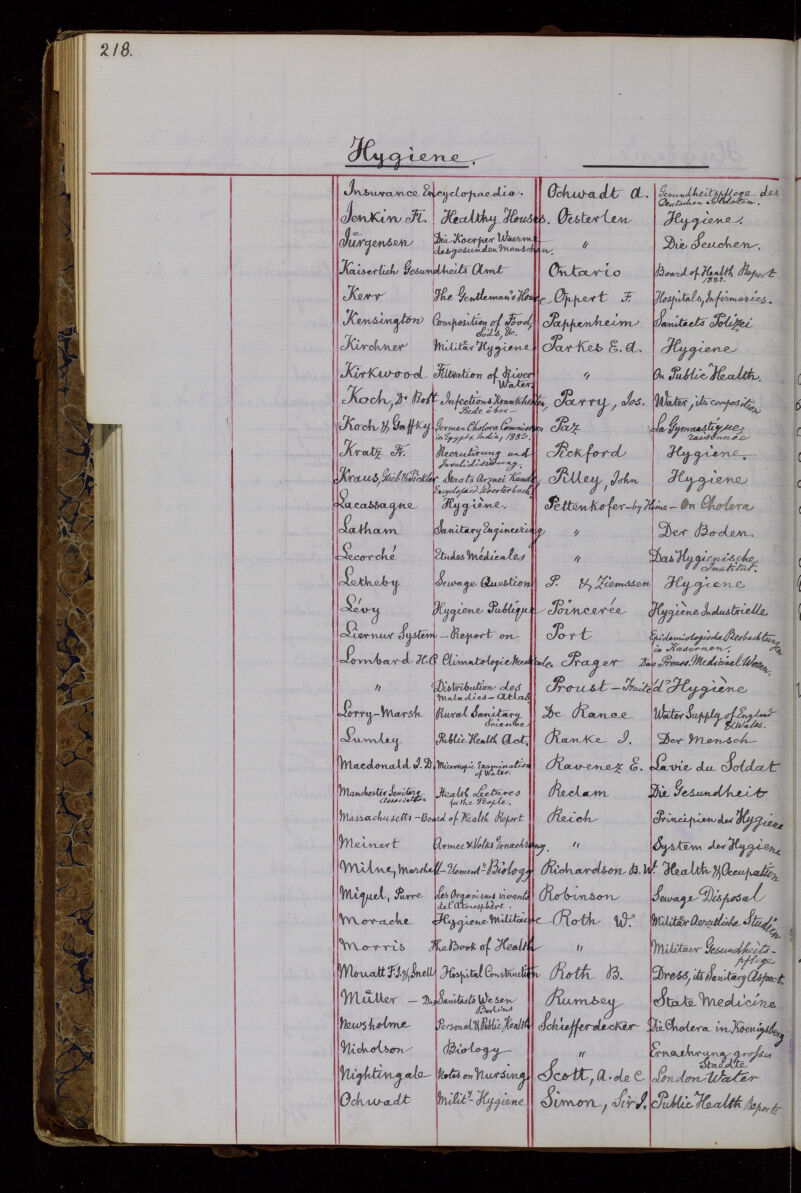 218.
Hygiene.
Insurance Encyclopaedia.
Jenkin Fl. Healthy Houses.
Jürgensen Die Koerper Waerme
des gesunden Menschen.
Kaiserlich Gesundheits Amt
Kerr The Gentleman's House
Kensington Composition of Food,
Soils, &c.
Kirchner Militär Hygiene
Kirkwood Filtration of River
Water
Koch, Dr Robt Infections Krankheiten,
Rede über —
Koch & Gaffky German Cholera Commission
in Egypt & India, 1883.
Kratz Fr. Recrutirung und
Invalidisirung.
Kraus, Staats Arznei Kunde
Encyclopaed. Woerterbuch
Lacassagne Hygiène.
Latham Sanitary Engineering
Lecorché Etudes Médicales
Letheby Sewage Question
Lévy Hygiene Publique
Liernur System — Report on
Lombard H.C Climatologie Medicale
" Distribution des
Maladies — Atlas
Lorry-Marsh Rural Sanitary
Science
Lumley Public Health Act.
Macdonald J. D. Microscopic Examination
of Water.
Manchester Sanitary Health Lectures
Association for the People.
Massachusetts — Board of Health Report
Meinert Armee & Volks Ernaehrung.
Milne, Marshall — Element.y Biology
Miquel, Pierre Les Organismes vivants
de l'atmosphère.
Morache Hygiene Militaire
Morris The Book of Health
Mouatt F.J. & Snell Hospital Construction
Müller — Das Sanitaets Wesen
Berlins
Newsholme Personal & Public Health
Nicholson Biology
Nightingale Notes on Nursing
Ochwadt Milit.y Hygiene
Ochwadt A. Gesundheitspflege des
Deutschen Soldaten.
Oesterlen Hygiene.
" Die Seuchen.
Ontario Board of Health Report
1882.
Oppert F. Hospitals, Infirmaries.
Pappenheim Sanitaets Polizei
Parkes E. A. Hygiene
" On Public Health.
Parry, Jos. Water, its composition
Paz La Gymnastique
raisonnée
Pickford Hygiene.
Pilley, John Hygiene
Pettenkofer — by Hime — On Cholera
" Der Boden.
" Das Hygienische
Institut.
P. & Ziemssen Hygiene
Poincerée Hygiène Industrielle
Port Epidemiologische Beobachtungen
in Kasernen.
Prager Das Preuss. Medicinal Wesen.
Proust — Traité d'Hygiène
De Rance Water Supply of England
& Wales.
Ranke J. Der Mensch
Ravenez E. La vie du Soldat
Reclam Die Gesundheit
Reich Principien der Hygiene
" System der Hygiene
Richardson B. W. Health & Occupation
Robinson Sewage Disposal
Roth W. Militär Aerztliche Studien
" Militaer Gesundheits-
pflege
Roth B. Dress, its Sanitary Aspect.
Rumsey State Medicine
Schiefferdecker Die Cholera in Koenigsberg
" Ernaehrung grosser
Staedte
Scott, A. de C London Water
Simon, Sir J. Public Health Reports